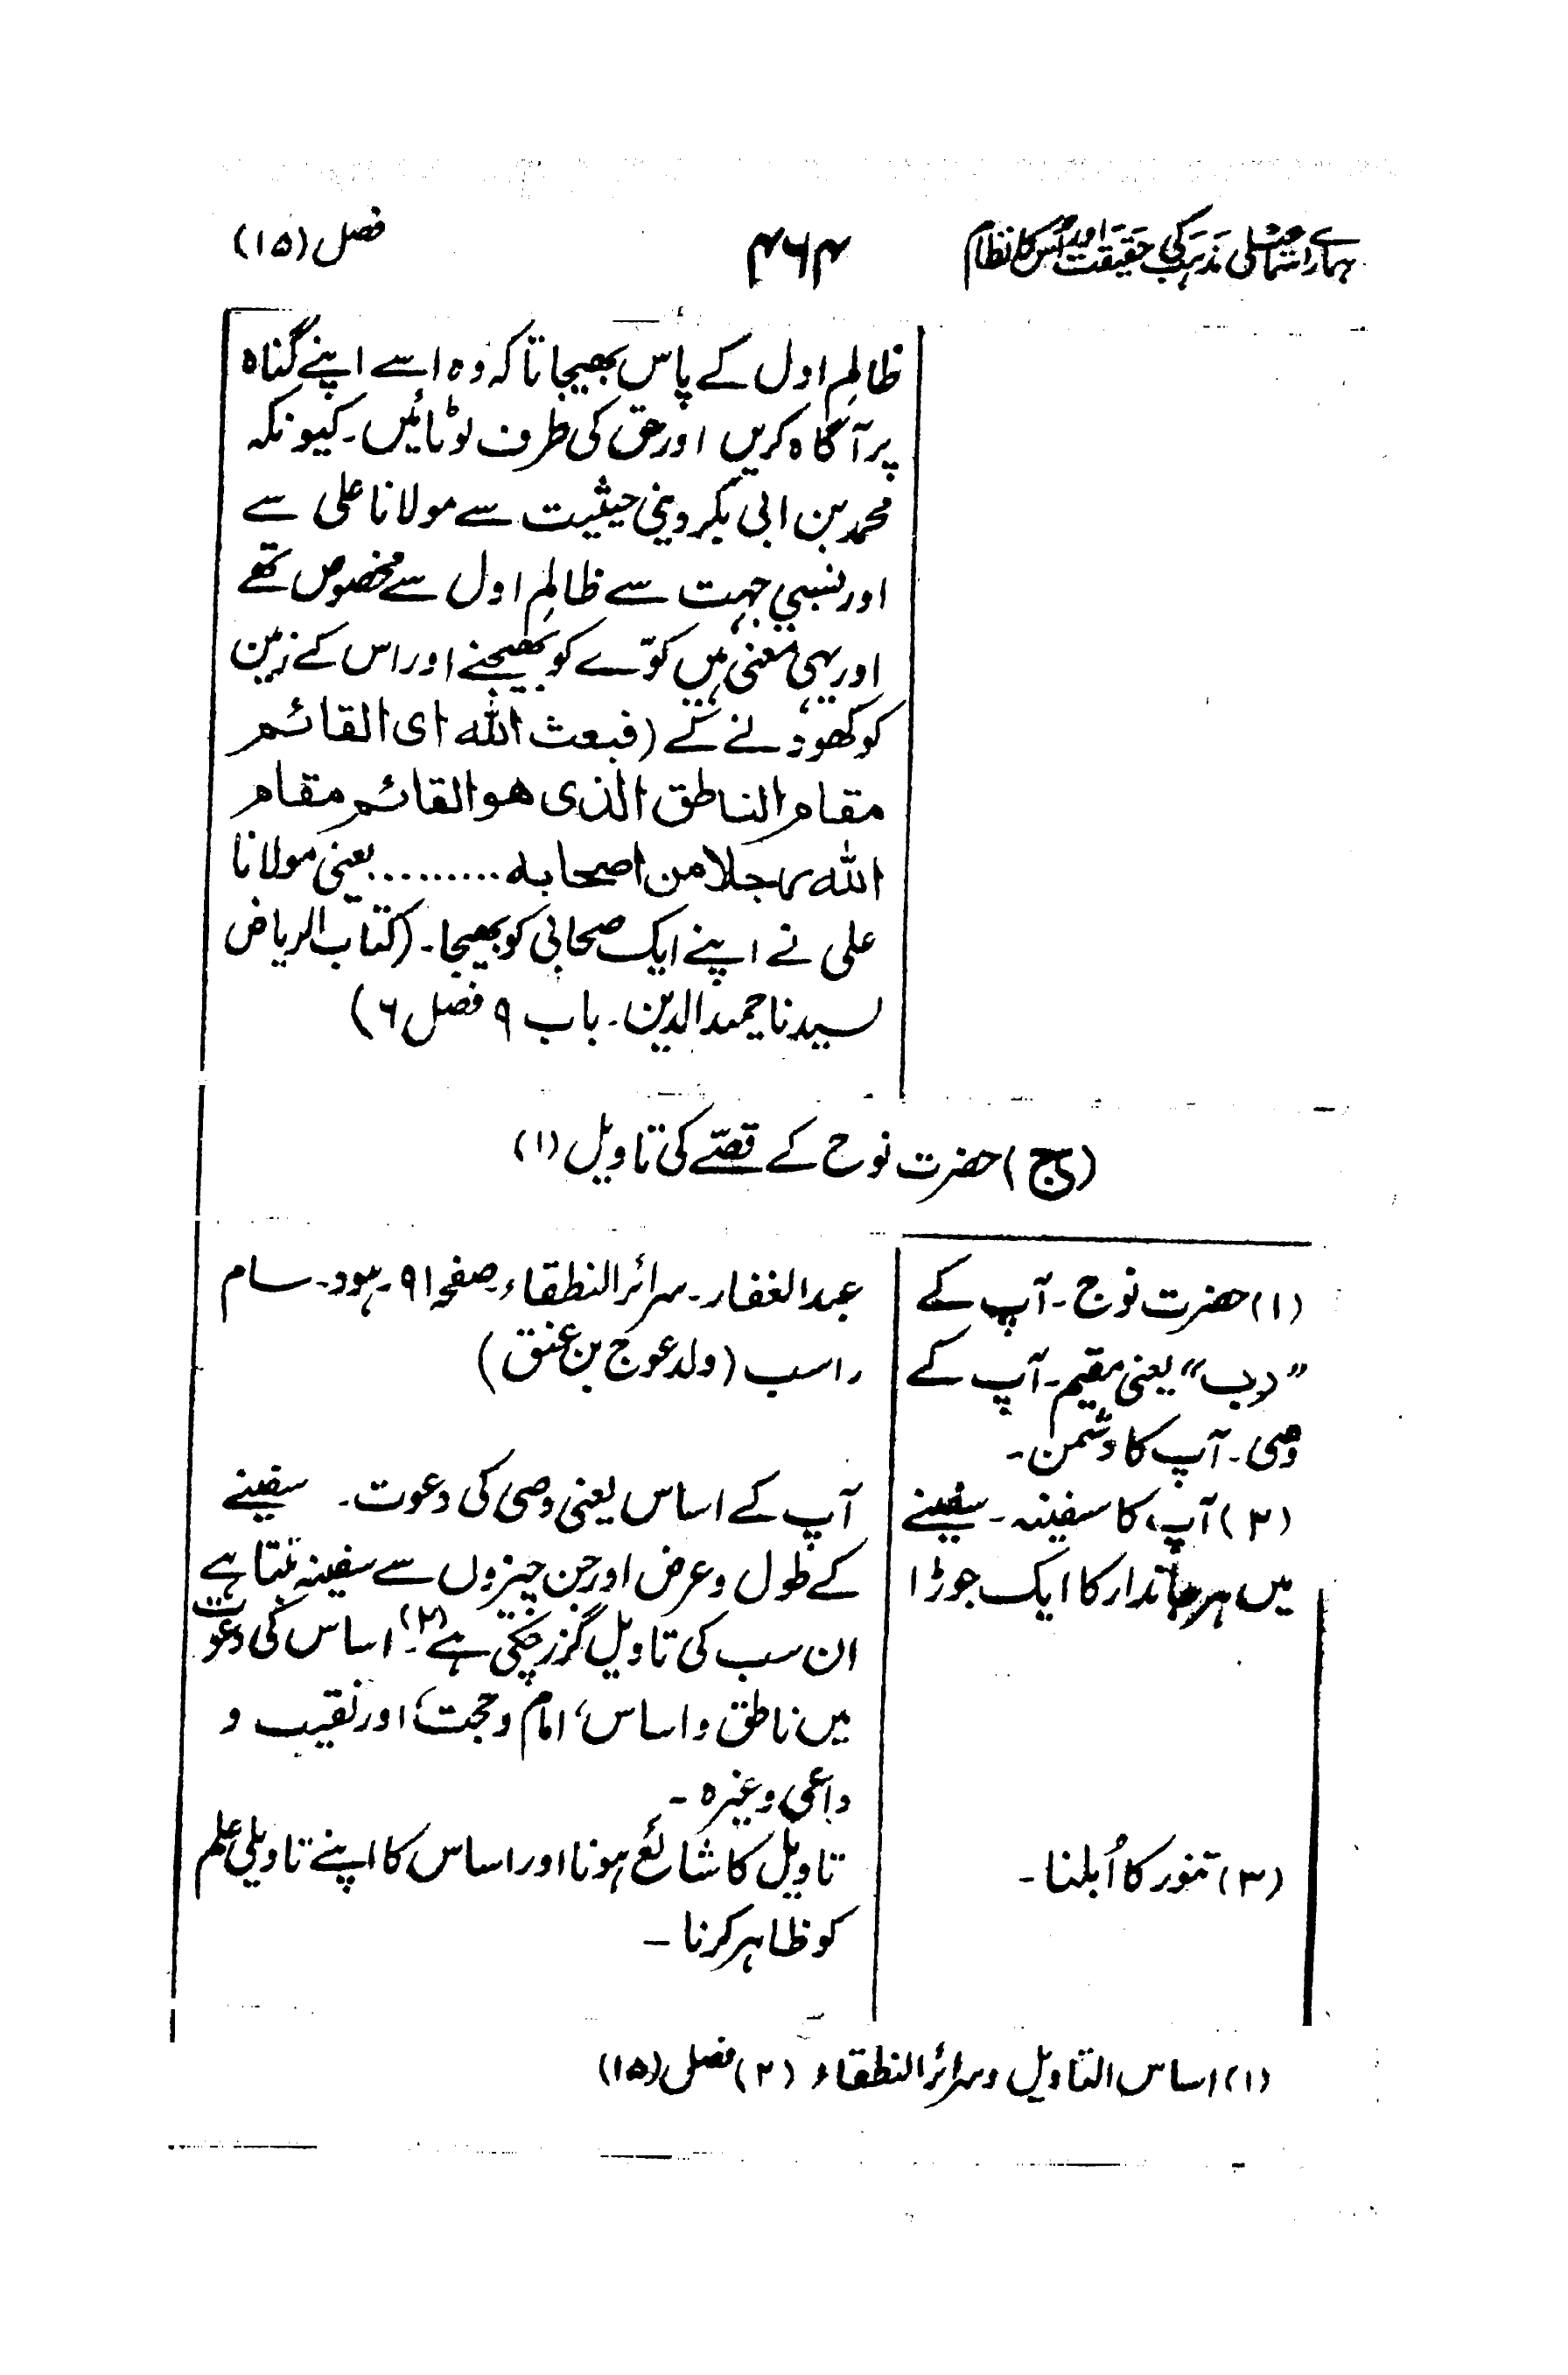 ہمارے اسماعیلی مذہب کی حقیقت اور اُس کا نظام ۴۶۴ فصل (۱۵)
ظالمِ اول کے پاس بھیجا تاکہ وہ اسے اپنے گناہ
پر آگاہ کریں اور حق کی طرف لوٹائیں۔ کیونکہ
محمد بن ابی بکر دینی حیثیت سے مولانا علی سے
اور نسبی جہت سے ظالمِ اول سے مخصوص تھے
اور یہی معنی ہیں کوّے کو بھیجنے اور اس کے زمین
کو کھودنے کے (فبعث الله ای القائم
مقام الناطق الذی ھو القائم مقام
الله رجلا من اصحابه ......... یعنی مولانا
علی نے اپنے ایک صحابی کو بھیجا۔ (کتاب الریاض
لسیدنا حمید الدین۔ باب ۹ فصل ۶)
(ج) حضرت نوح کے قصّے کی تاویل (۱)
(۱) حضرت نوح۔ آپ کے
”رب“ یعنی مقیم۔ آپ کے
وصی۔ آپ کا دشمن۔
عبد الغفار۔ سرائر النطقاء۔ صفحہ ۹۱۔ ہود۔ سام
راسب (ولد عوج بن عنق)
(۲) آپ کا سفینہ۔ سفینے
میں ہر جاندار کا ایک جوڑا
آپ کے اساس یعنی وصی کی دعوت۔ سفینے
کے طول و عرض اور جن چیزوں سے سفینہ بنتا ہے
ان سب کی تاویل گزر چکی ہے (۲)۔ اساس کی دعوت
میں ناطق و اساس، امام و حجت، اور نقیب و
داعی وغیرہ۔
(۳) تنور کا اُبلنا۔
تاویل کا شائع ہونا اور اساس کا اپنے تاویلی علم
کو ظاہر کرنا۔
(۱) اساس التاویل و سرائر النطقاء (۲) فصل (۱۵)